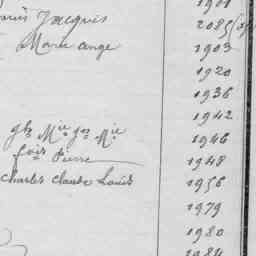 Jacques 2085
Marie Ange 1903
1920
1936
1942
gbs Mie Jos Mie 1946
fois Pierre 1948
Charles Claude Louis 1956
1979
1980
1984